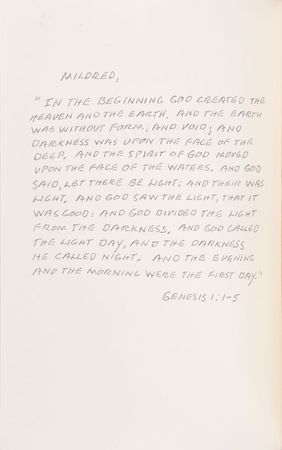 MILDRED,
"IN THE BEGINNING GOD CREATED THE
HEAVEN AND THE EARTH. AND THE EARTH
WAS WITHOUT FORM, AND VOID; AND
DARKNESS WAS UPON THE FACE OF THE
DEEP. AND THE SPIRIT OF GOD MOVED
UPON THE FACE OF THE WATERS. AND GOD
SAID, LET THERE BE LIGHT: AND THEIR WAS
LIGHT, AND GOD SAW THE LIGHT, THAT IT
WAS GOOD: AND GOD DIVIDED THE LIGHT
FROM THE DARKNESS. AND GOD CALLED
THE LIGHT DAY, AND THE DARKNESS
HE CALLED NIGHT. AND THE EVENING
AND THE MORNING WERE THE FIRST DAY."
GENESIS 1:1-5